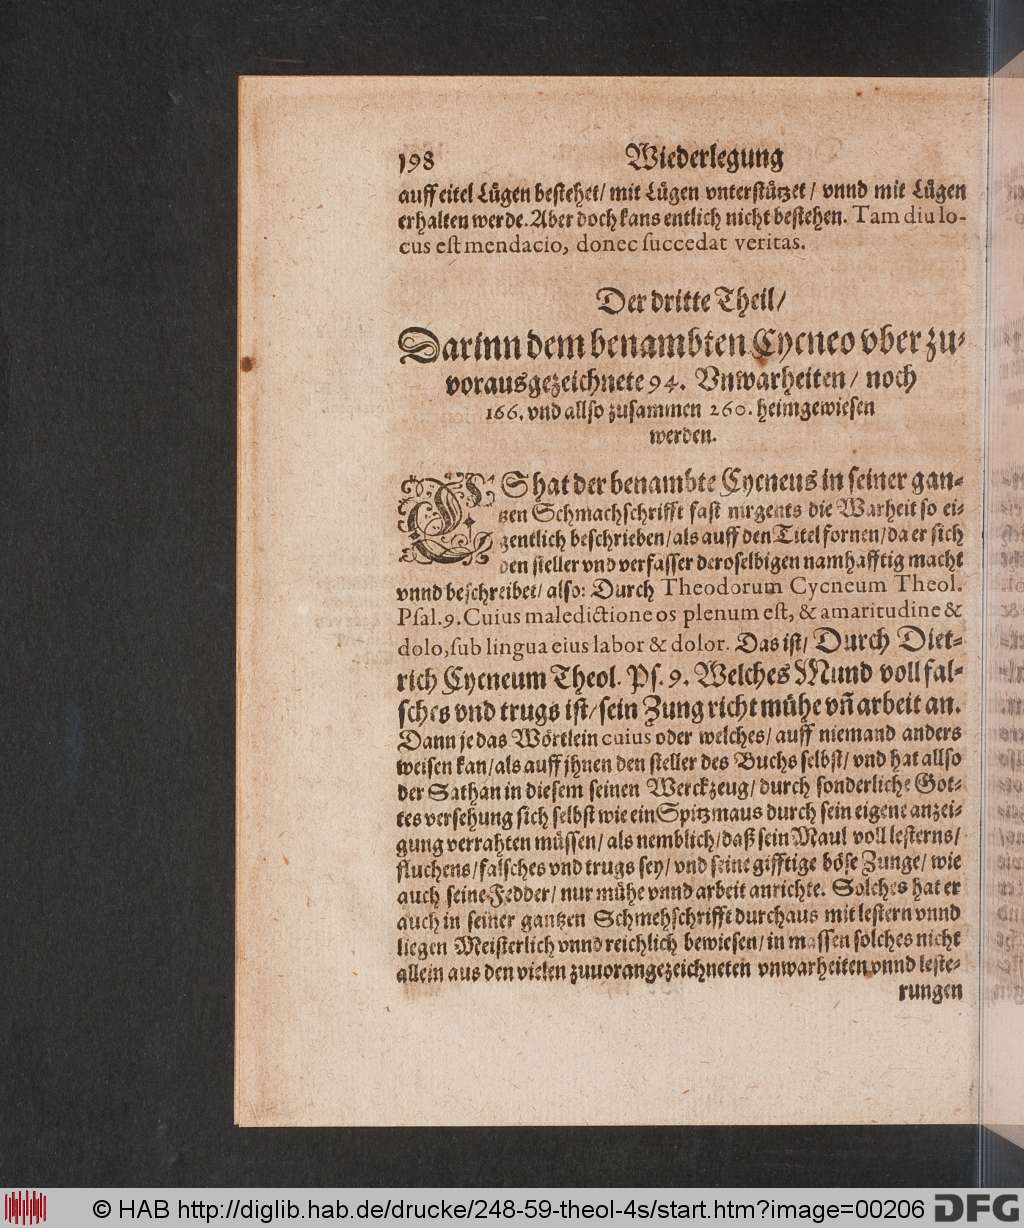 198 Wiederlegung
auff eitel Lügen bestehet/ mit Lügen vnterstützet/ vnnd mit Lügen
erhalten werde. Aber doch kans entlich nicht bestehen. Tam diu lo-
cus est mendacio, donec succedat veritas.
Der dritte Theil/
Darinn dem benambten Cycneo vber zu-
vorausgezeichnete 94. Vnwarheiten/ noch
166. vnd allso zusammen 260. heimgewiesen
werden.
ES hat der benambte Cycneus in seiner gan-
tzen Schmachschrifft fast nirgents die Warheit so ei-
gentlich beschrieben/ als auff den Titel fornen/ da er sich
den steller vnd verfasser deroselbigen namhafftig macht
vnnd beschreibet/ also: Durch Theodorum Cycneum Theol.
Psal. 9. Cuius maledictione os plenum est, & amaritudine &
dolo, sub lingua eius labor & dolor. Das ist/ Durch Diet-
rich Cycneum Theol. Ps. 9. Welches Mund voll fal-
sches vnd trugs ist/ sein Zung richt mühe vñ arbeit an.
Dann je das Wörtlein cuius oder welches/ auff niemand anders
weisen kan/ als auff jhnen den steller des Buchs selbst/ vnd hat allso
der Sathan in diesem seinen Werckzeug/ durch sonderliche Got-
tes versehung sich selbst wie ein Spitzmaus durch sein eigene anzei-
gung verrahten müssen/ als nemblich/ daß sein Maul voll lesterns/
fluchens/ falsches vnd trugs sey/ vnd seine gifftige böse Zunge/ wie
auch seine Fedder/ nur mühe vnnd arbeit anrichte. Solches hat er
auch in seiner gantzen Schmehschrifft durchaus mit lestern vnnd
liegen Meisterlich vnnd reichlich bewiesen/ in massen solches nicht
allein aus den vielen zuuorangezeichneten vnwarheiten vnnd leste-
rungen
© HAB http://diglib.hab.de/drucke/248-59-theol-4s/start.htm?image=00206 DFG